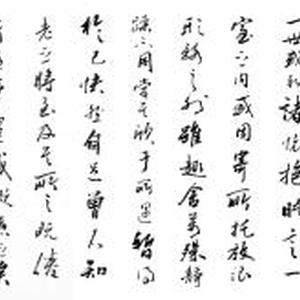 一世或取諸懷抱悟言一
室之内或因寄所托放浪
形骸之外雖趣舍萬殊靜
躁不同當其欣于所遇暫得
於己快然自足曾不知
老之將至及其所之既倦
隨事遷感慨係之矣